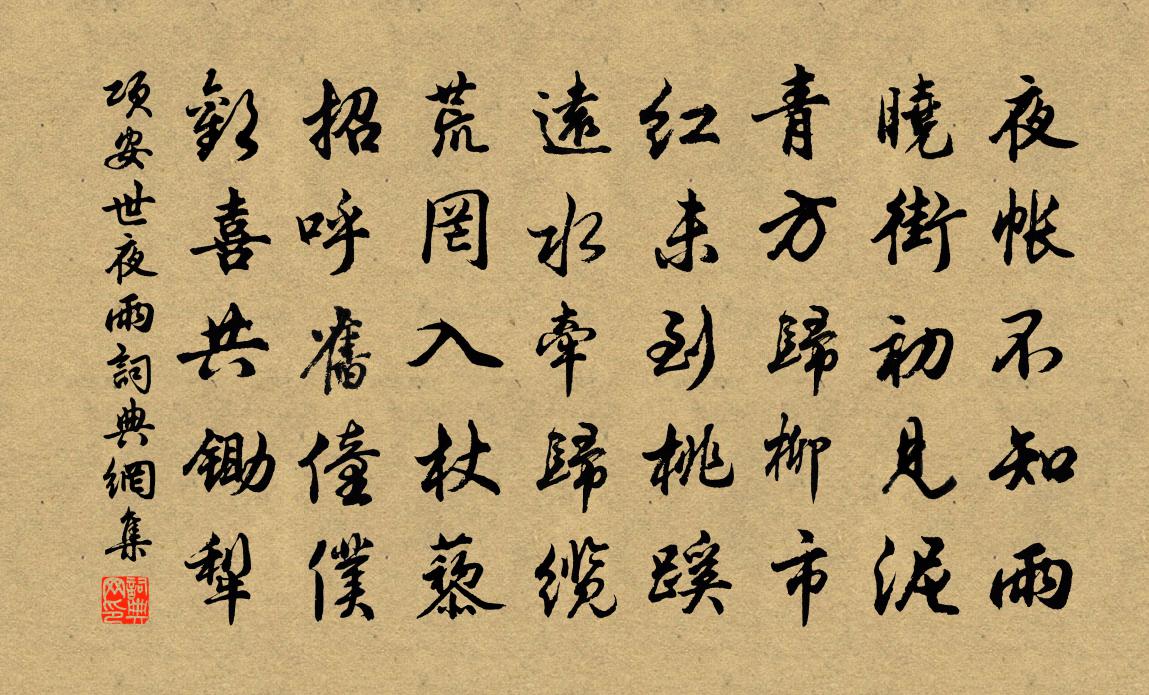 夜帐不知雨
曉街初見泥
青方歸柳市
红未到桃蹊
遠水牽歸缆
荒罔入杖藜
招呼舊僮僕
歡喜共鋤犁
项安世夜雨詞典網集
詞典网印